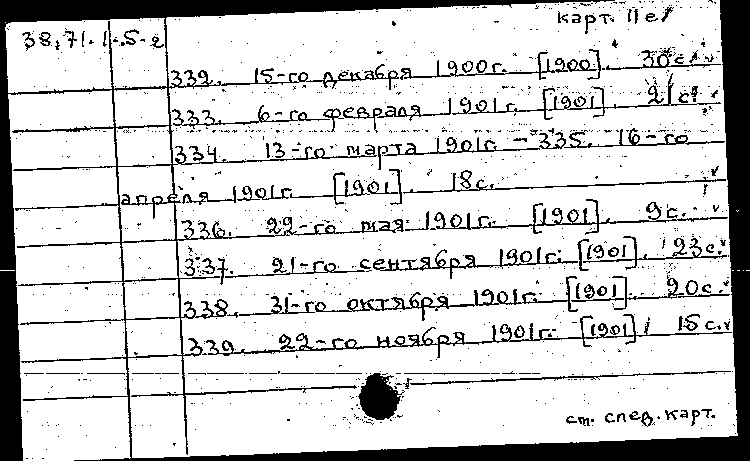 карт. 11е/
38.71.1.5-2
332. 15-го декабря 1900г. [1900]. 30с.
333. 6-го февраля 1901г. [1901]. 21с.
334. 13-го марта 1901г. - 335. 16-го
апреля 1901г. [1901]. 18с.
336. 22-го мая 1901г. [1901]. 9с.
337. 21-го сентября 1901г. [1901]. 23с.
338. 31-го октября 1901г. [1901]. 20с.
339. 22-го ноября 1901г. [1901] 15с.
см. след. карт.